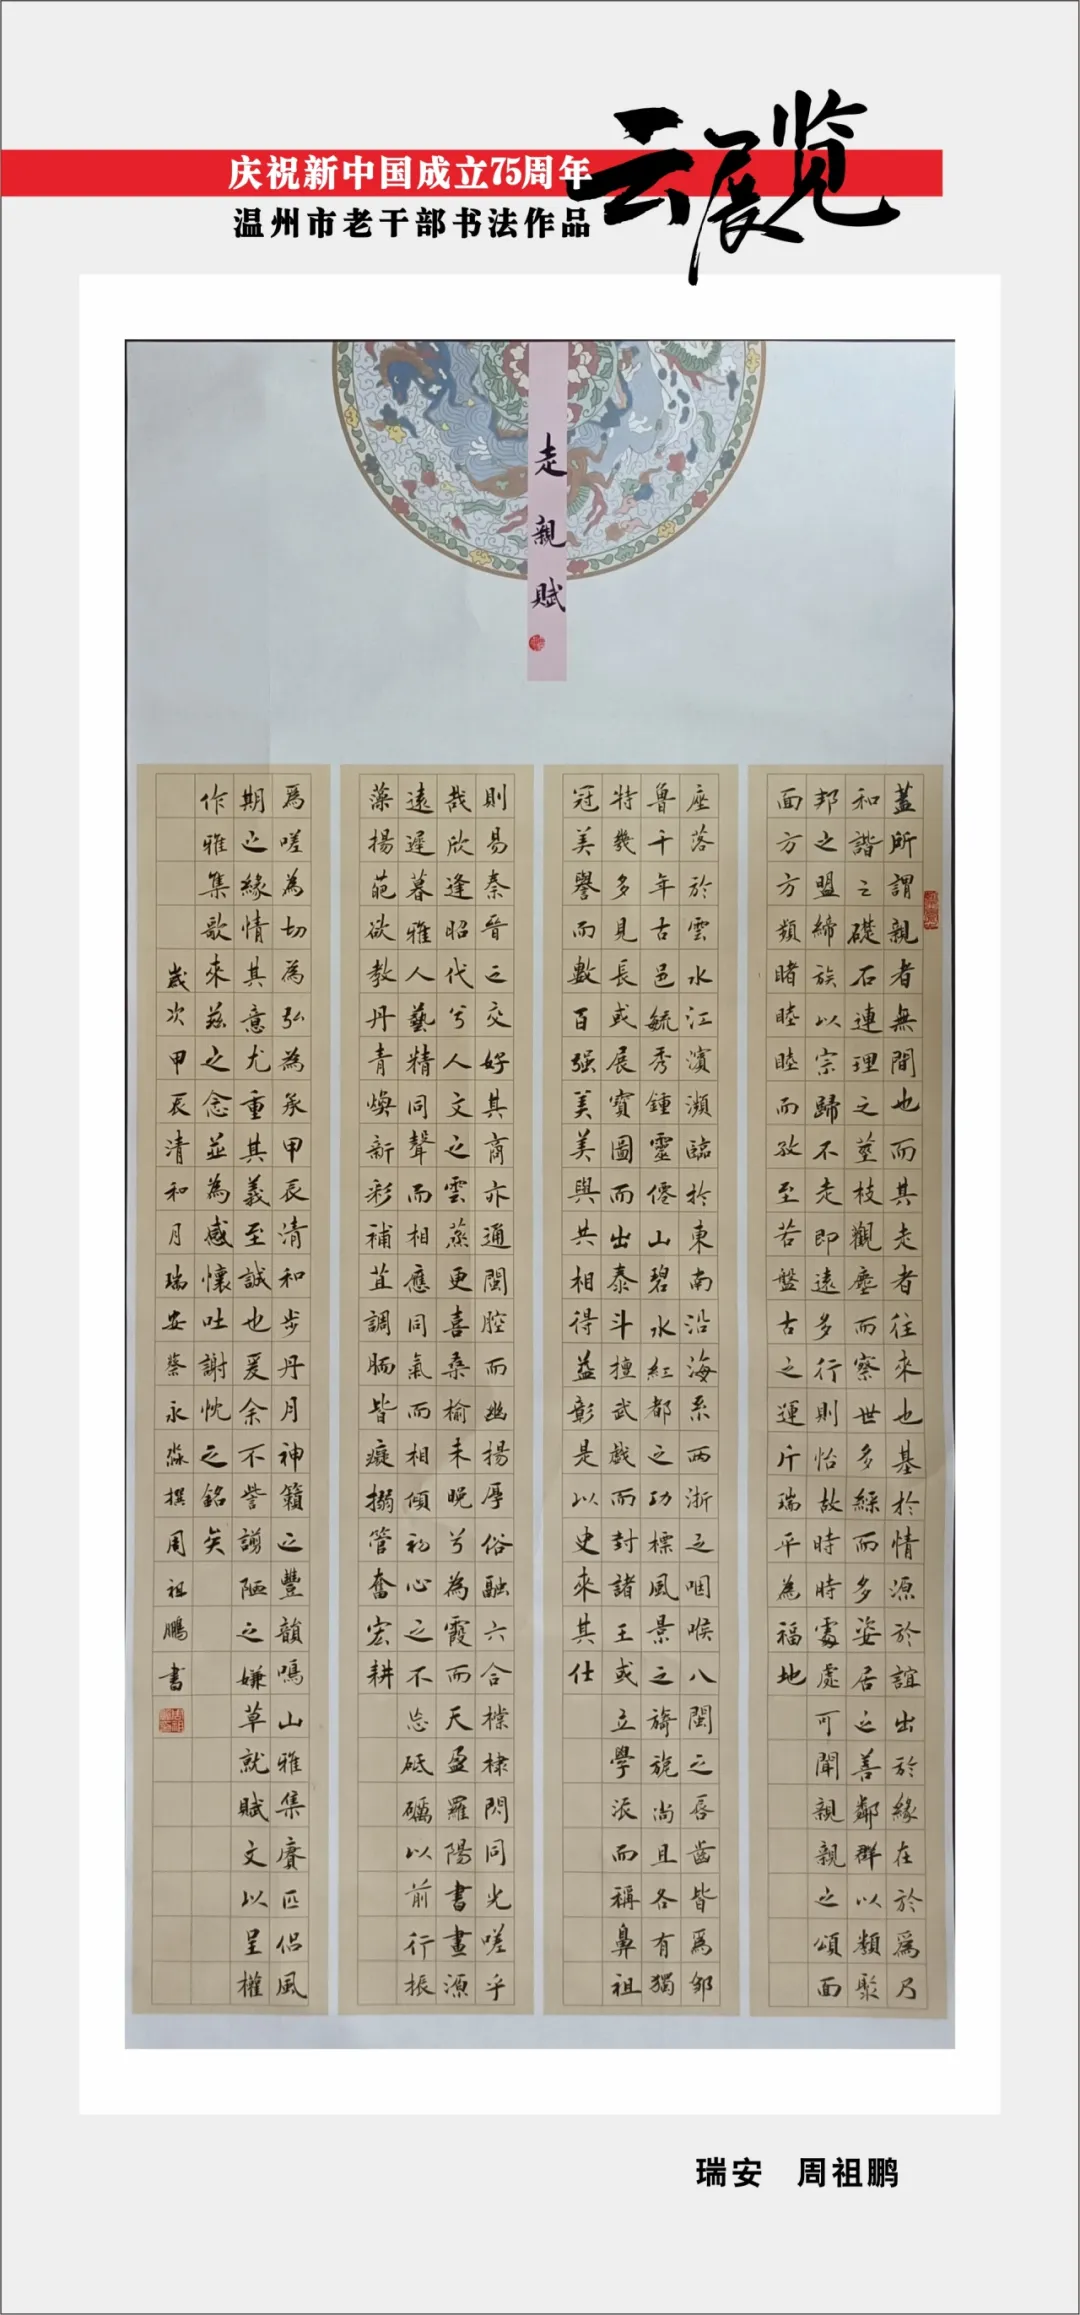 庆祝新中国成立75周年
温州市老干部书法作品
云展览
走親賦
蓋所謂親者無間也而其走者往來也基於情源於誼出於緣在於爲乃
和諧之礎石連理之莖枝觀塵而察世多綵而多姿居之善鄰群以類聚
邦之盟締族以宗歸不走即遠多行則怡故時時處處可聞親親之頌面
面方方類睹睦睦而孜至若盤古之運斤瑞平為福地
座落於雲水江濱瀕臨於東南沿海系兩浙之咽喉八閩之唇齒皆爲鄒
魯千年古邑毓秀鍾靈僊山碧水紅都之功標風景之旖旎尚且各有獨
特幾多見長或展寳圖而出泰斗擅武戲而封諸王或立學派而稱鼻祖
冠美譽而數百强美美與共相得益彰是以史來其仕
則易秦晉之交好其商亦通閩腔而幽揚厚俗融六合檪棣閃同光嗟乎
哉欣逢昭代兮人文之雲蒸更喜桑榆未晚兮為霞而天盈羅陽書畫源
遠遲暮雅人藝精同聲而相應同氣而相傾初心之不忘砥礪以前行振
藻揚葩欲教丹青煥新彩補苴調胹皆癡搦管奮宏耕
爲嗟為切為弘為承甲辰清和步丹月神籟之豐韻鳴山雅集賡匹侶風
期之緣情其意尤重其義至誠也爰余不訾謭陋之嫌草就賦文以呈權
作雅集歌來茲之念並為感懷吐謝忱之銘矣
歲次甲辰清和月瑞安蔡永淼撰周祖鵬書
瑞安 周祖鹏